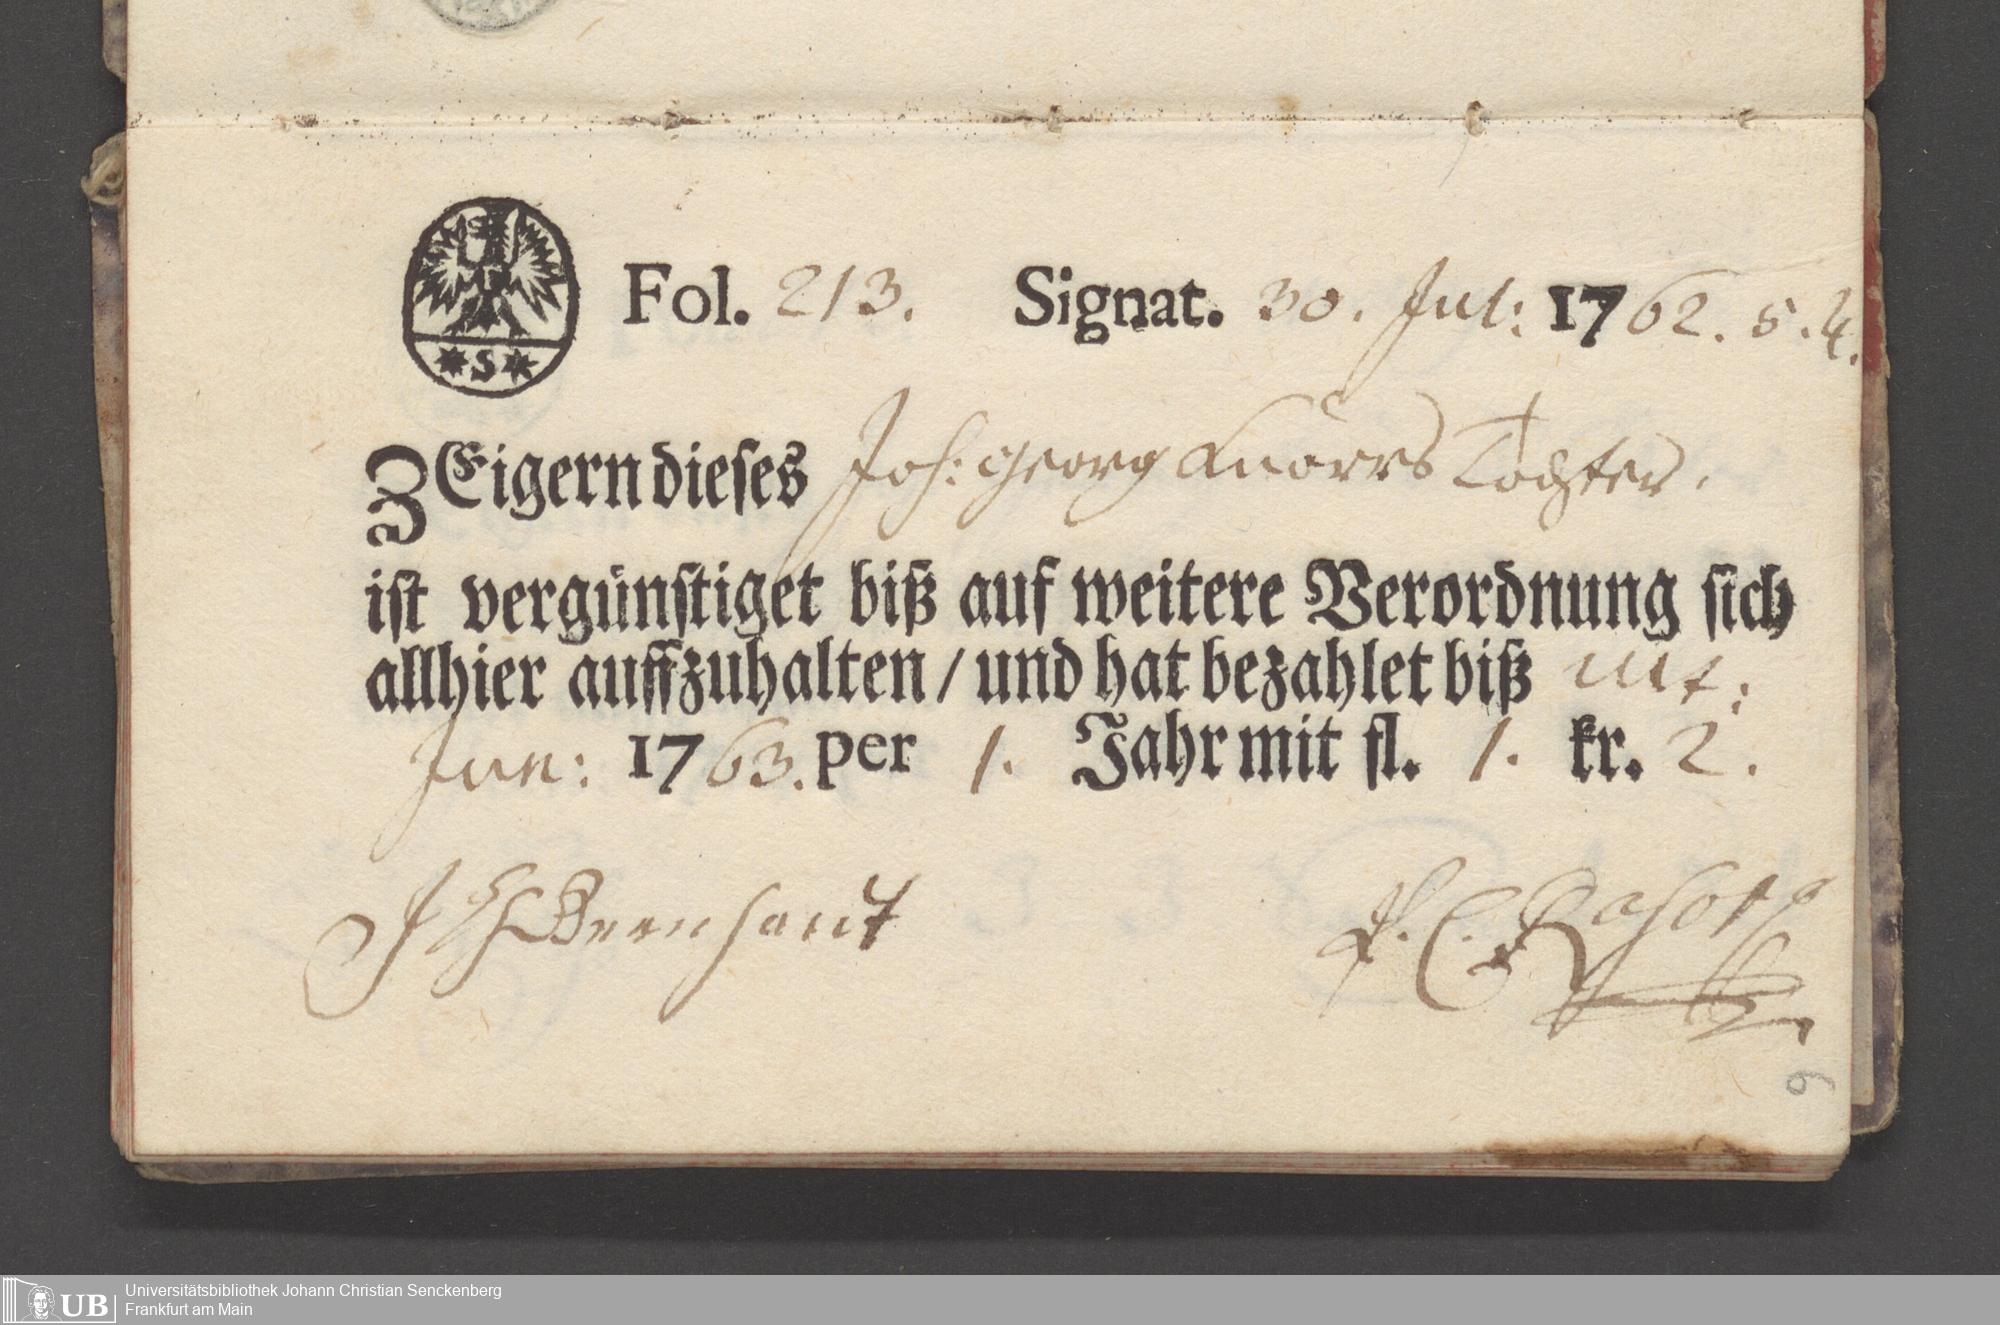 S
Fol. 213. Signat. 30. Jul: 1762. 5. 4.
ZEigern dieses Joh: Georg Knörrs Tochter.
ist vergünstiget biß auf weitere Verordnung sich
allhier auffzuhalten / und hat bezahlet biß ult:
Jun: 1763. per 1. Jahr mit fl. 1. kr. 2.
Bernhard
6
UB
Universitätsbibliothek Johann Christian Senckenberg
Frankfurt am Main